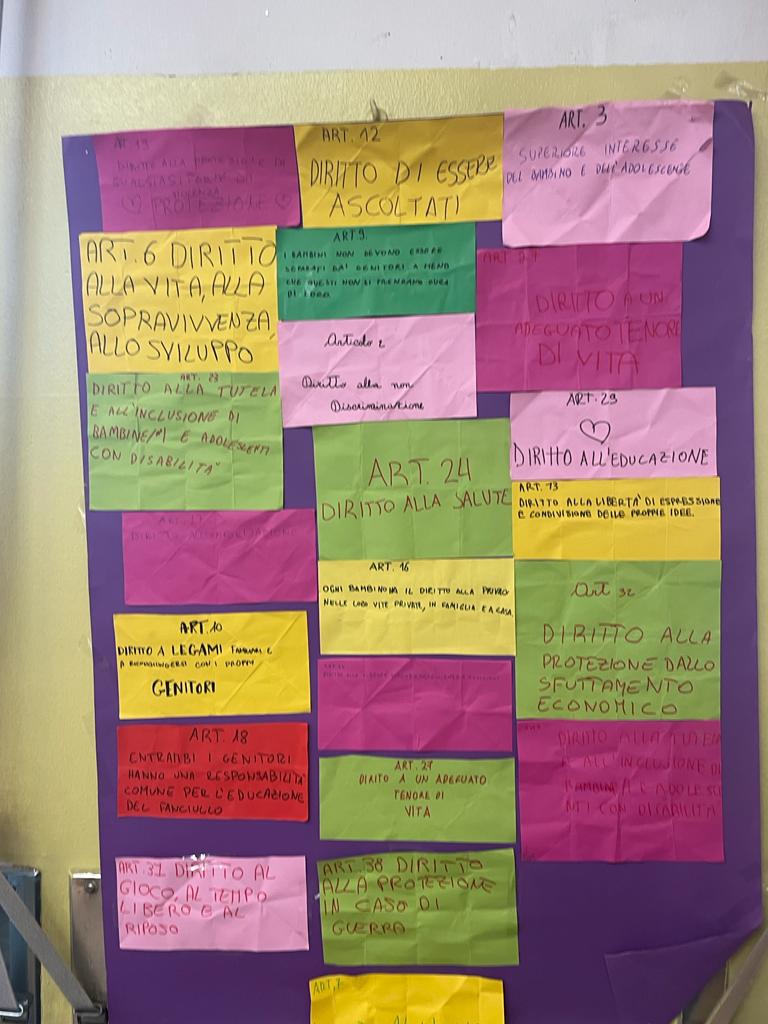 ART. 19
DIRITTO ALLA PROTEZIONE DI
QUALSIASI FORMA DI
VIOLENZA
PROTEZIONE
ART. 12
DIRITTO DI ESSERE
ASCOLTATI
ART. 3
SUPERIORE INTERESSE
DEL BAMBINO E DELL'ADOLESCENTE
ART. 6 DIRITTO
ALLA VITA, ALLA
SOPRAVVIVENZA,
ALLO SVILUPPO
ART 9.
I BAMBINI NON DEVONO ESSERE
SEPARATI DA' GENITORI A MENO
CHE QUESTI NON SI PRENDANO CURA
DI LORO.
ART 27
DIRITTO A UN
ADEGUATO TENORE
DI VITA
Articolo 2
Diritto alla non
Discriminazione
ART. 23
DIRITTO ALLA TUTELA
E ALL'INCLUSIONE DI
BAMBINE/I E ADOLESCENTI
CON DISABILITA'
ART. 29
DIRITTO ALL'EDUCAZIONE
ART. 24
DIRITTO ALLA SALUTE
ART. 13
DIRITTO ALLA LIBERTA' DI ESPRESSIONE
E CONDIVISIONE DELLE PROPRIE IDEE.
ART. 17
DIRITTO ALL'INFORMAZIONE
ART. 16
OGNI BAMBINO HA IL DIRITTO ALLA PRIVACY
NELLE LORO VITE PRIVATE, IN FAMIGLIA E A CASA.
Art 32
DIRITTO ALLA
PROTEZIONE DALLO
SFUTTAMENTO
ECONOMICO
ART. 10
DIRITTO A LEGAMI FAMILIARI E
A RICONGIUNGERSI CON I PROPRI
GENITORI
ART. 18
ENTRAMBI I GENITORI
HANNO UNA RESPONSABILITA'
COMUNE PER L'EDUCAZIONE
DEL FANCIULLO
ART. 27
DIRITO A UN ADEGUATO
TENORE DI
VITA
DIRITTO ALLA TUTELA
E ALL'INCLUSIONE DI
BAMBINI E ADOLESCE
NTI CON DISABILITA'
ART. 31 DIRITTO AL
GIOCO, AL TEMPO
LIBERO E AL
RIPOSO
ART. 38 DIRITTO
ALLA PROTEZIONE
IN CASO DI
GUERRA
ART. 7